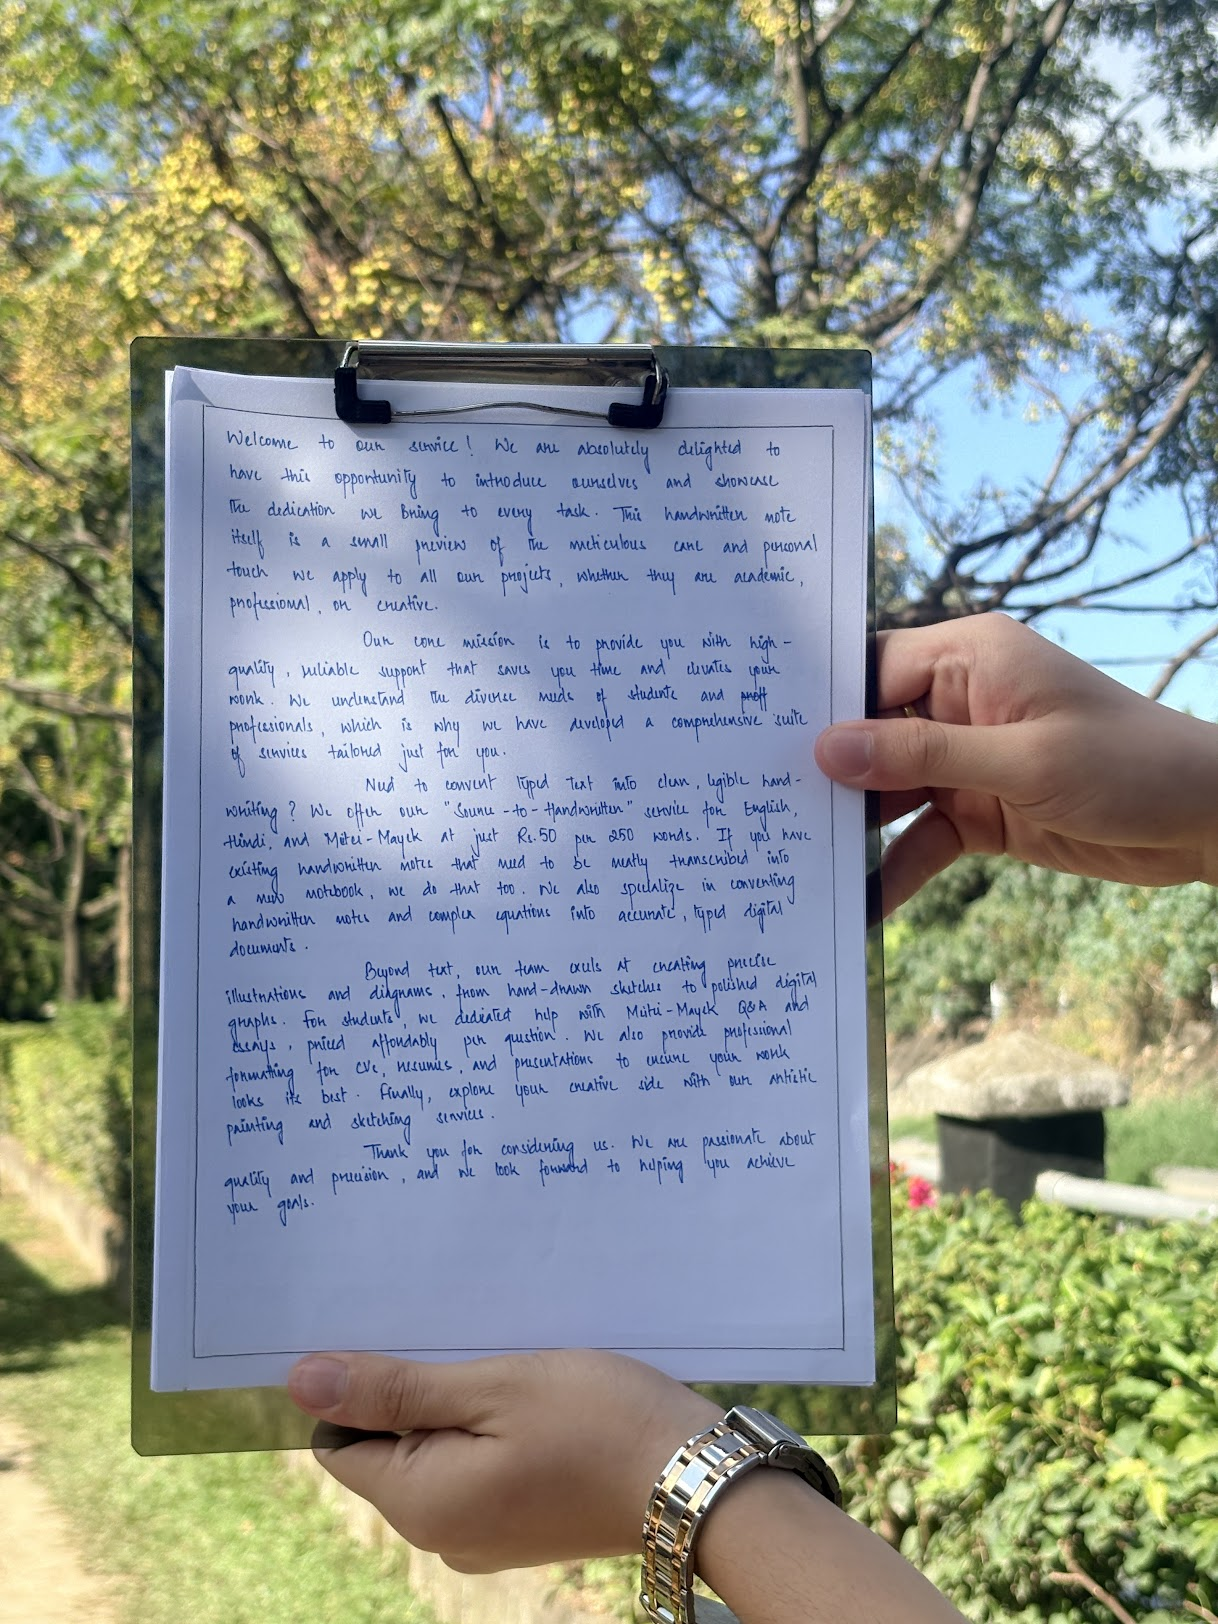 Welcome to our service! We are absolutely delighted to
have this opportunity to introduce ourselves and showcase
the dedication we bring to every task. This handwritten note
itself is a small preview of the meticulous care and personal
touch we apply to all our projects, whether they are academic,
professional, or creative.
Our core mission is to provide you with high-
quality, reliable support that saves you time and elevates your
work. We understand the diverse needs of students and proff
professionals, which is why we have developed a comprehensive suite
of services tailored just for you.
Need to convert typed text into clean, legible hand-
writing? We offer our "Source-to-Handwritten" service for English,
Hindi, and Meitei-Mayek at just Rs.50 per 250 words. If you have
existing handwritten notes that need to be neatly transcribed into
a new notebook, we do that too. We also specialize in converting
handwritten notes and complex equations into accurate, typed digital
documents.
Beyond text, our team excels at creating precise
illustrations and diagrams, from hand-drawn sketches to polished digital
graphs. For students, we dedicated help with Meitei-Mayek Q&A and
essays, priced affordably per question. We also provide professional
formatting for CVs, resumes, and presentations to ensure your work
looks its best. Finally, explore your creative side with our artistic
painting and sketching services.
Thank you for considering us. We are passionate about
quality and precision, and we look forward to helping you achieve
your goals.